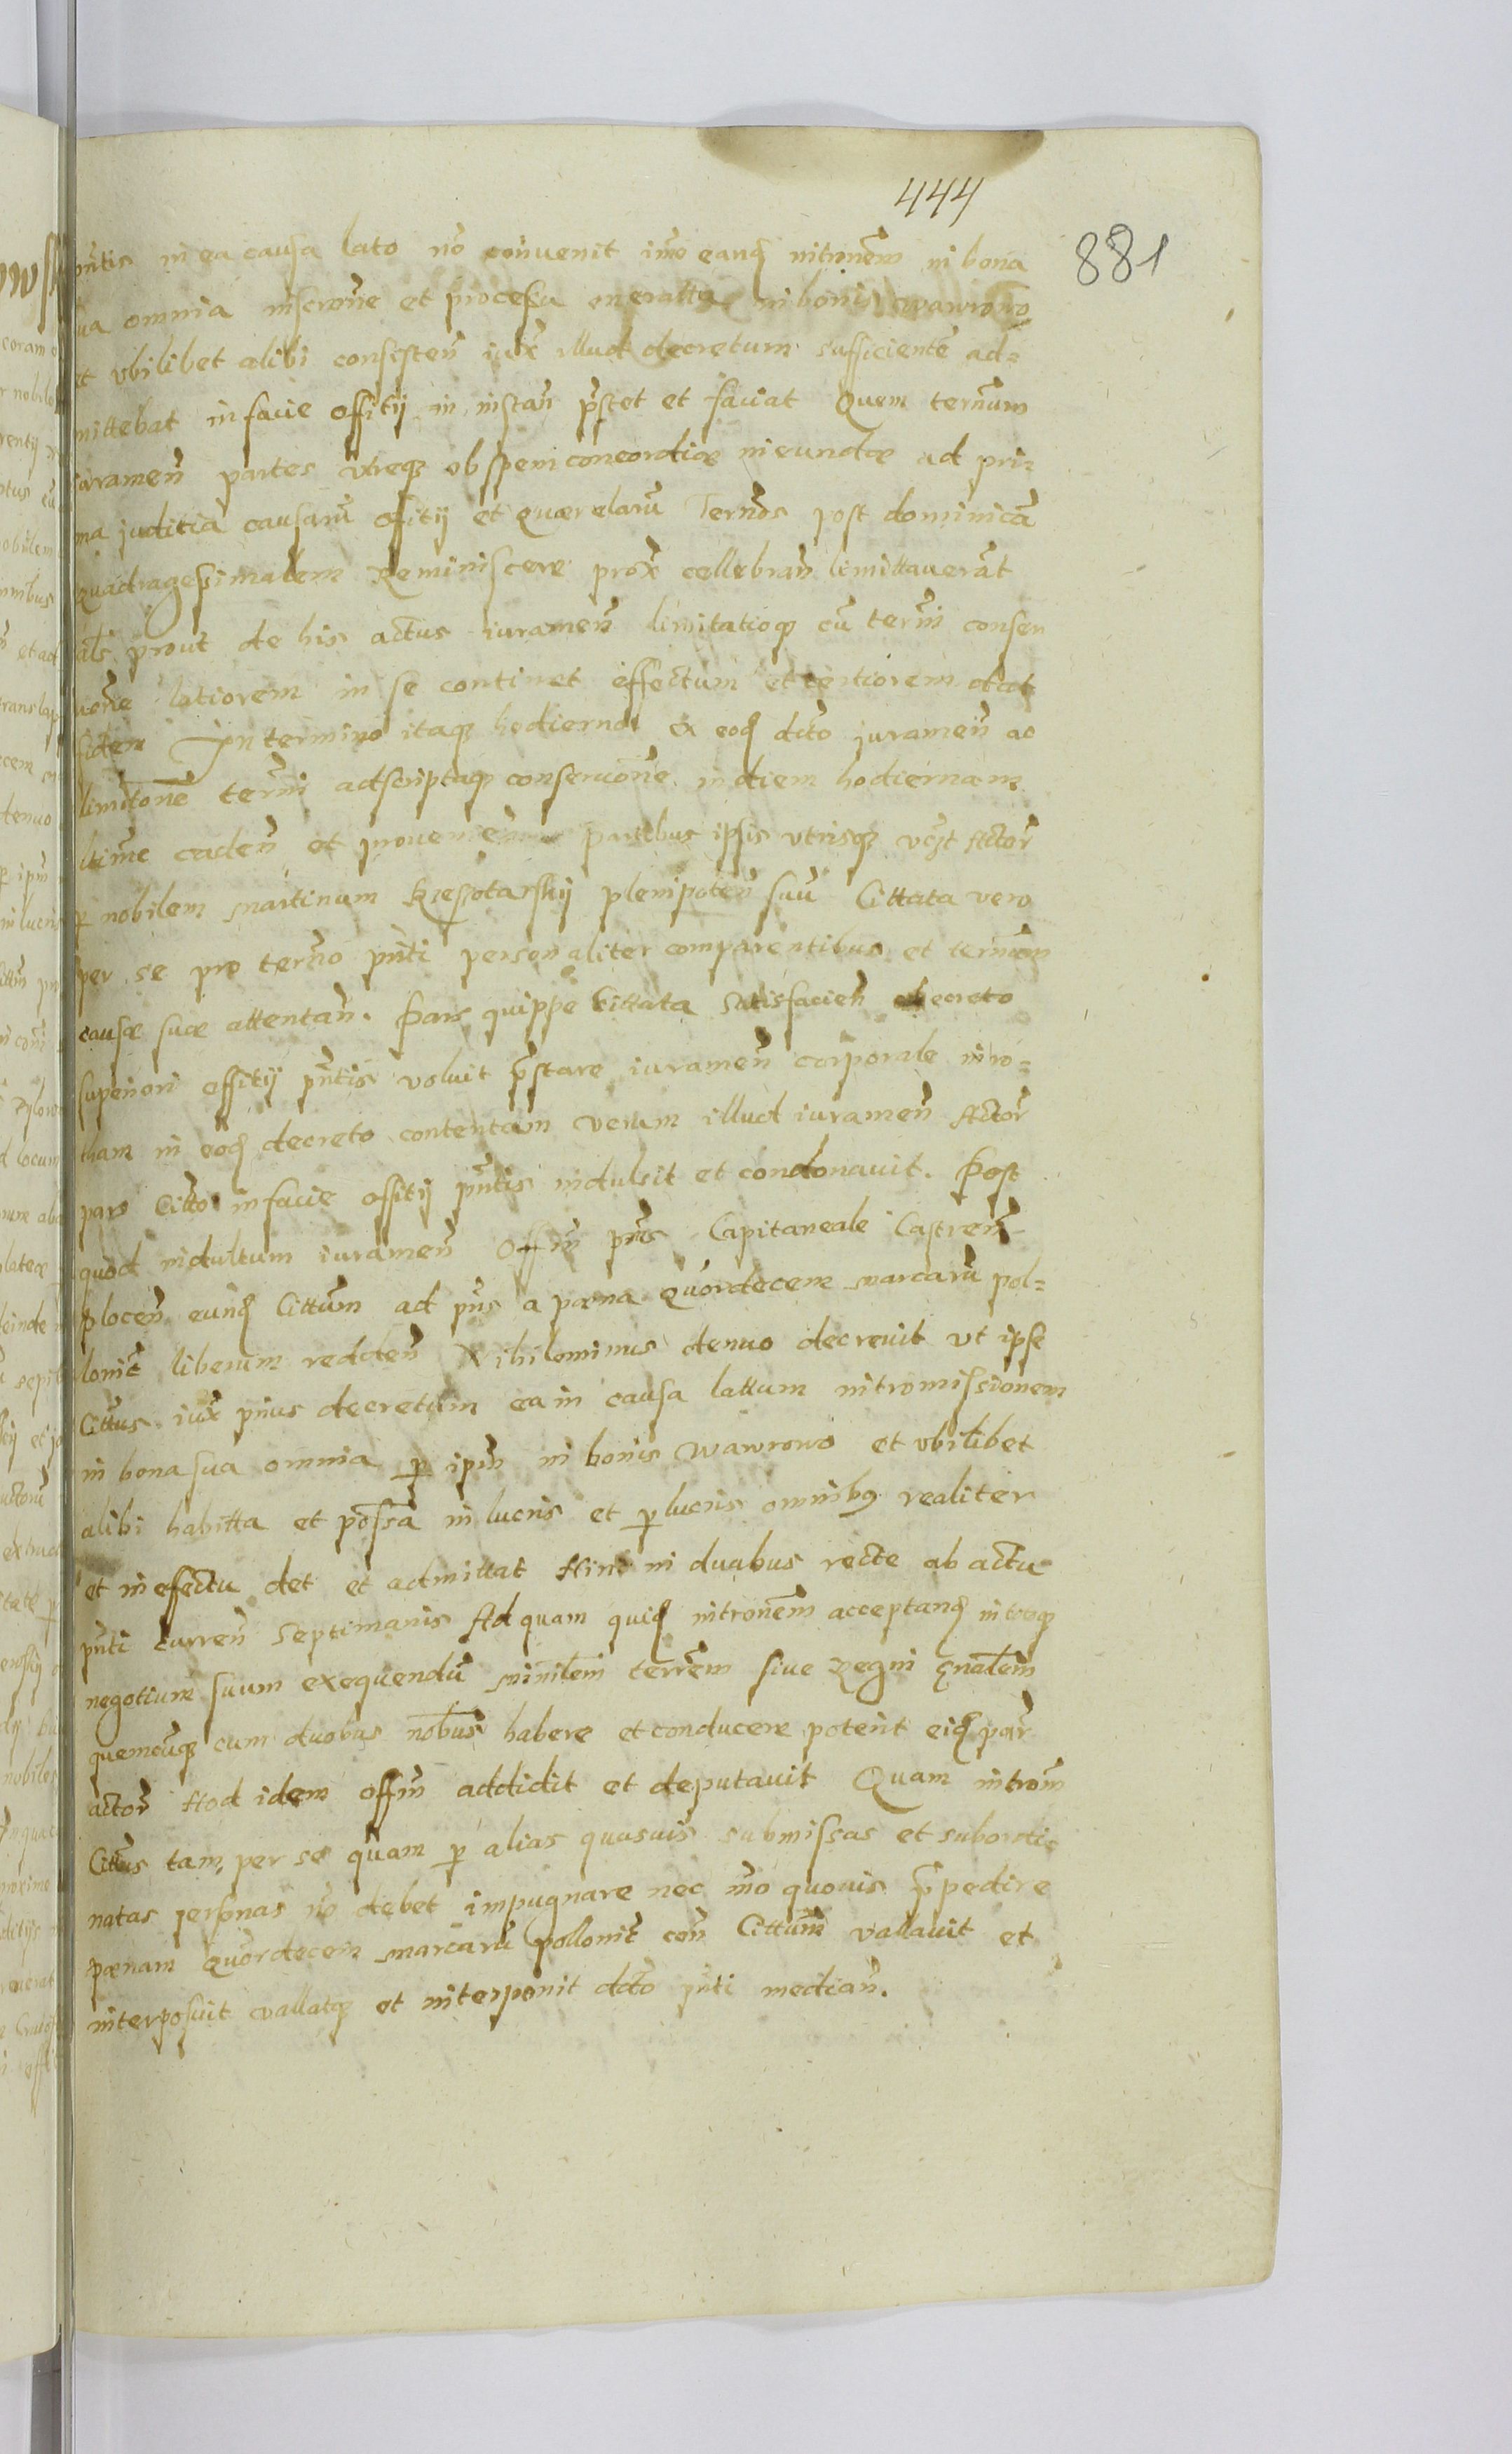 444
881
pñtis in ea causa lato nō conuenit imo eanđ intronem in bona
sua omnia inscrōne et procesu oneratta in bonis wawrowo
et vbilibet alibi consisteñ iux illud decretum sufficientē ad=
mittebat in facie offitij in instañ p̄stet et faciat Quem termūm
iurameñ partes vtreqʒ ob spem concordiæ ineundæ ad pri=
ma juditia causarū offitij et quærelarū Termōs post dominicā
quadragessimalem Reminiscere prox̄ cellebrañ limittauerāt
als prout de his actus iurameñ limitatioqʒ cū termi conser
uōne latiorem in se continet effectum et certiorem dat
fidem In termino itaqʒ hodierno ex eođ dcto jurameñ ac
limitōne termi adscriptaqʒ conseruōne in diem hodiernam
ltime cadeñ et proueniēn partibus ipsis vtrisqʒ vczt Actor
p nobilem Martinum Krzeszotarskij plenipoteñ suū Cittata vero
per se pro termo pñti personaliter comparentibus et termūm
causæ suæ attentañ. Pars quippe Cittata satisfacieñ decreto
superiori offitij pñtis voluit p̄stare iurameñ corporale in ro=
tham in eođ decreto contentam verum illud iurameñ Actor
pars Citto in facie offitij pñtis indulsit et condonauit. Post
quod indultum iurameñ Offm pñs Capitaneale Castreñ
Ploceñ eunđ Cittum ad pñs a pœna quordecem marcarū pol=
lonic̄ liberum reddeñ Nihilominus denuo decreuit vt ipse
Cittus iux prius decretum ea in causa lattum intromissionem
in bona sua omnia p ipm in bonis Wawrowo et vbilibet
alibi habitta et possa in lucris et p lucris omnibʒ realiter
et in efectu det et admittat Hinc in duabus recte ab actu
pñti curreñ Septimanis Ad quam quiđ intronem acceptanđ intotqʒ
negotium suum exequendū Minilem terrem siue Regni gnalem
quemcūqʒ cum duobus nobus habere et conducere poterit eiđ par
actor Hod idem offm addidit et deputauit Quam introm
Cittus tam per se quam p alias quasuis submissas et subordi=
natas personas nō debet impugnare nec mo quouis p̄pedire
pœnam quordecem marcarū pollonic̄ coñ Cittum vallauit et
interposuit vallatqʒ et interponit dcto pñti mediañ.